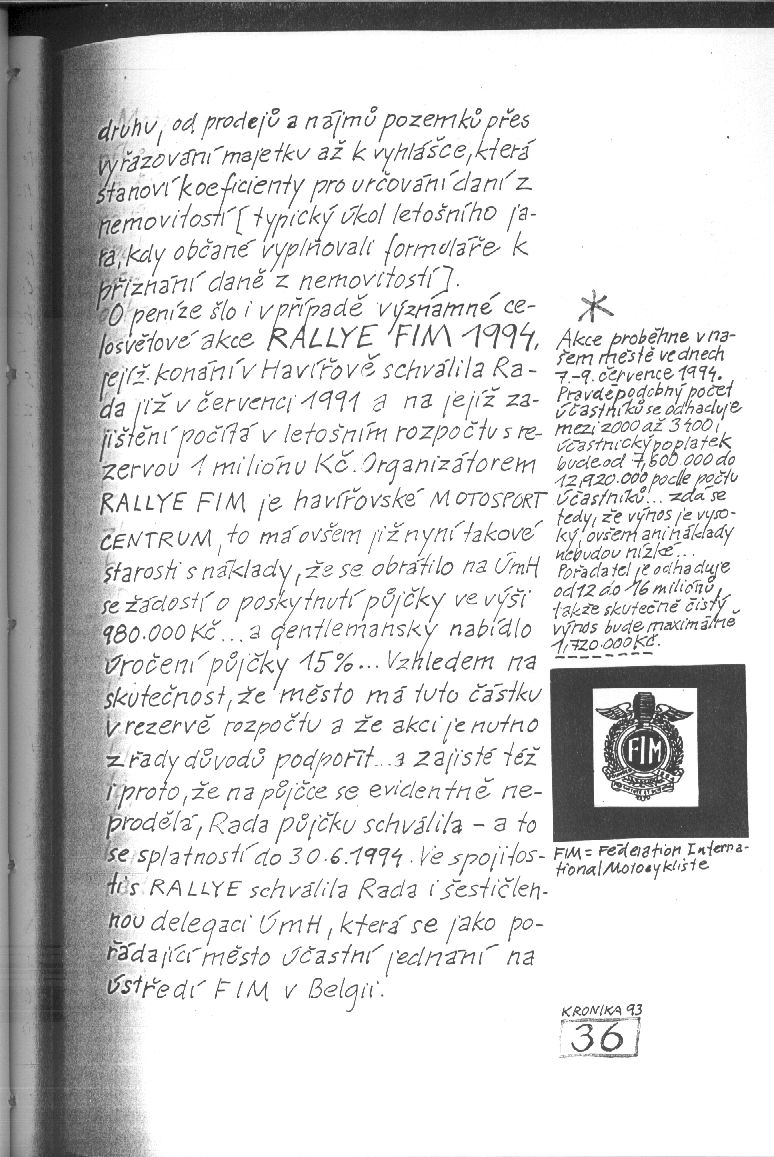 druhu, od prodejů a nájmů pozemků přes
vyřazování majetku až k vyhlášce, která
stanoví koeficienty pro určování daní z
nemovitostí [typický úkol letošního ja-
ra, kdy občané vyplňovali formuláře k
přiznání daně z nemovitostí].
O peníze šlo i v případě významné ce-
losvětové akce RALLYE FIM 1994,
jejíž konání v Havířově schválila Ra-
da již v červenci 1991 a na jejíž za-
jištění počítá v letošním rozpočtu s re-
zervou 1 miliónu Kč. Organizátorem
RALLYE FIM je havířovské MOTOSPORT
CENTRUM, to má ovšem již nyní takové
starosti s náklady, že se obrátilo na ÚmH
se žádostí o poskytnutí půjčky ve výši
980.000 Kč... a gentlemansky nabídlo
úročení půjčky 15%... Vzhledem na
skutečnost, že město má tuto částku
v rezervě rozpočtu a že akci je nutno
z řady důvodů podpořit... a zajisté též
i proto, že na půjčce se evidentně ne-
prodělá, Rada půjčku schválila - a to
se splatností do 30.6.1994. Ve spojitos-
ti s RALLYE schválila Rada i šestičlen-
nou delegaci ÚmH, která se jako po-
řádající město účastní jednání na
ústředí FIM v Belgii.
*
Akce proběhne v na-
šem městě ve dnech
7.-9. července 1994.
Pravděpodobný počet
účastníků se odhaduje
mezi 2000 až 3400;
účastnický poplatek
bude od 7,600.000 do
12,920.000 podle počtu
účastníků... zdá se
tedy, že výnos je vyso-
ký, ovšem ani náklady
nebudou nízké...
Pořadatel je odhaduje
od 12 do 16 miliónů,
takže skutečně čistý
výnos bude maximálně
1,720.000 Kč.
FIM
FIM = Féderation Interna-
tional Motocykliste
KRONIKA 93
36